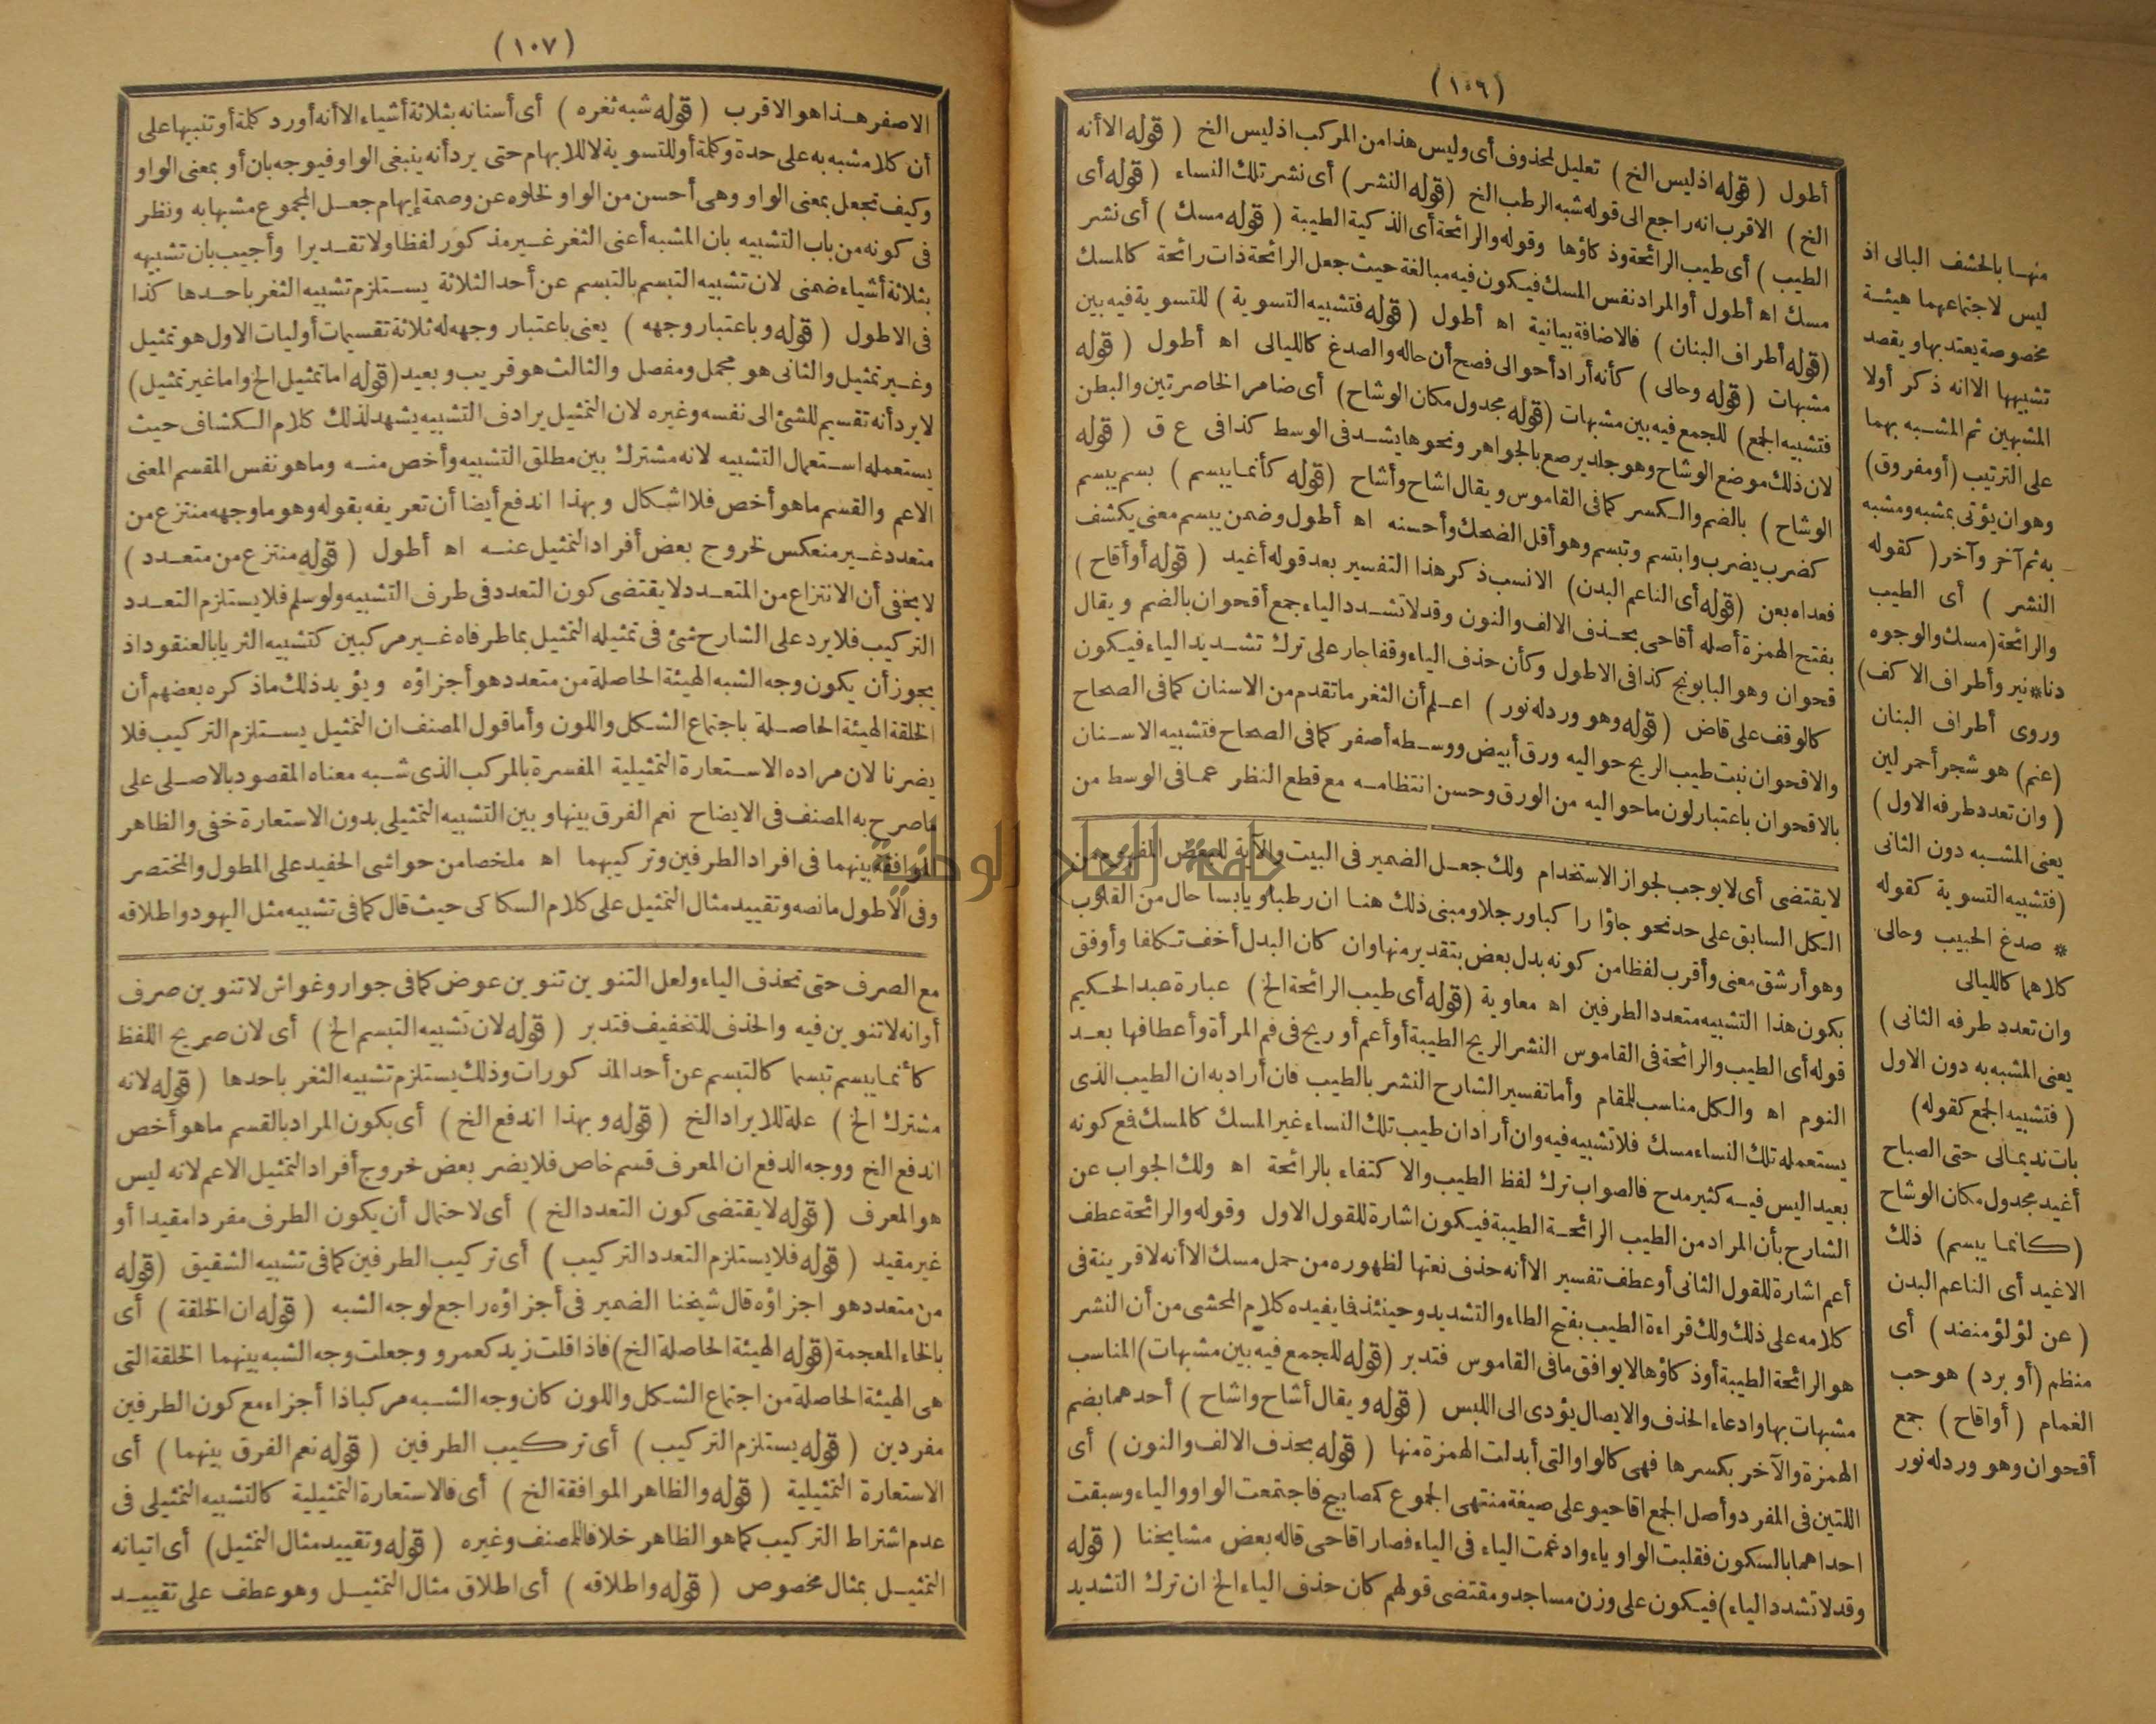 (١٠٦)
أطول (قوله اذ ليس الخ) تعليل لمحذوف أى وليس هذا من المركب اذ ليس الخ (قوله الا أنه
الخ) الاقرب انه راجع الى قوله شبه الرطب الخ (قوله النشر) أى نشر تلك النساء (قوله أى
الطيب) أى طيب الرائحة وذكاؤها وقوله والرائحة أى الذكية الطيبة (قوله مسك) أى نشر
مسك اه أطول أو المراد نفس المسك فيكون فيه مبالغة حيث جعل الرائحة ذات رائحة كالمسك
(قوله أطراف البنان) فالاضافة بيانية اه أطول (قوله فتشبيه التسوية) للتسوية فيه بين
مشبهات (قوله وحالى) كأنه أراد أحوالى فصح أن حاله والصدغ كالليالى اه أطول (قوله
فتشبيه الجمع) للجمع فيه بين مشبهات (قوله مجدول مكان الوشاح) أى ضامر الخاصرتين والبطن
لان ذلك موضع الوشاح وهو جلد يرصع بالجواهر ونحوها يشد فى الوسط كذا فى ع ق (قوله
الوشاح) بالضم والكسر كما فى القاموس ويقال اشاح وأشاح (قوله كأنما يبسم) بسم يبسم
كضرب يضرب وابتسم وتبسم وهو أقل الضحك وأحسنه اه أطول وضمن يبسم معنى يكشف
فعداه بعن (قوله أى الناعم البدن) الانسب ذكر هذا التفسير بعد قوله أغيد (قوله أو أقاح)
بفتح الهمزة أصله أقاحى بحذف الالف والنون وقد لا تشدد الياء جمع أقحوان بالضم ويقال
قحوان وهو البابونج كذا فى الاطول وكأن حذف الياء وقفا جار على ترك تشديد الياء فيكون
كالوقف على قاض (قوله وهو ورد له نور) اعلم أن الثغر ما تقدم من الاسنان كما فى الصحاح
والاقحوان نبت طيب الريح حواليه ورق أبيض ووسطه أصفر كما فى الصحاح فتشبيه الاسنان
بالاقحوان باعتبار لون ما حواليه من الورق وحسن انتظامه مع قطع النظر عما فى الوسط من
لا يقتضى أى لا يوجب لجواز الاستخدام ولك جعل الضمير فى البيت والآية للبعض المفهوم من
الكل السابق على حد نحو جاؤا راكبا ورجلا ومبنى ذلك هنا ان رطبا ويابسا حال من القلوب
وهو أرشق معنى وأقرب لفظا من كونه بدل بعض بتقدير منها وان كان البدل أخف تكلفا وأوفق
بكون هذا التشبيه متعدد الطرفين اه معاوية (قوله أى طيب الرائحة الخ) عبارة عبد الحكيم
قوله أى الطيب والرائحة فى القاموس النشر الريح الطيبة أو أعم أو ريح فى فم المرأة وأعطافها بعد
النوم اه والكل مناسب للمقام وأما تفسير الشارح النشر بالطيب فان أراد به ان الطيب الذى
يستعمله تلك النساء مسك فلا تشبيه فيه وان أراد ان طيب تلك النساء غير المسك كالمسك فمع كونه
بعيدا ليس فيه كثير مدح فالصواب ترك لفظ الطيب والاكتفاء بالرائحة اه ولك الجواب عن
الشارح بأن المراد من الطيب الرائحة الطيبة فيكون اشارة للقول الاول وقوله والرائحة عطف
أعم اشارة للقول الثانى أو عطف تفسير الا أنه حذف نعتها لظهوره من حمل مسك الا أنه لا قرينة فى
كلامه على ذلك ولك قراءة الطيب بفتح الطاء والتشديد وحينئذ فما يفيده كلام المحشى من أن النشر
هو الرائحة الطيبة أو ذكاؤها لا يوافق ما فى القاموس فتدبر (قوله للجمع فيه بين مشبهات) المناسب
مشبهات بها وادعاء الحذف والايصال يؤدى الى اللبس (قوله ويقال أشاح واشاح) أحدهما بضم
الهمزة والآخر بكسرها فهى كالواو التى أبدلت الهمزة منها (قوله بحذف الالف والنون) أى
اللتين فى المفرد وأصل الجمع اقاحيو على صيغة منتهى الجموع كمصابيح فاجتمعت الواو والياء وسبقت
احداهما بالسكون فقلبت الواو ياء وادغمت الياء فى الياء فصار اقاحى قاله بعض مشايخنا (قوله
وقد لا تشدد الياء) فيكون على وزن مساجد ومقتضى قولهم كان حذف الياء الخ ان ترك التشديد
منها بالحشف البالى اذ
ليس لاجتماعهما هيئة
مخصوصة يعتد بها ويقصد
تشبيهها الا انه ذكر أولا
المشبهين ثم المشبه بهما
على الترتيب (أو مفروق)
وهو ان يؤتى بمشبه ومشبه
به ثم آخر وآخر (كقوله
النشر) أى الطيب
والرائحة (مسك والوجوه
دنا*نير وأطراف الاكف)
وروى أطراف البنان
(عنم) هو شجر أحمر لين
(وان تعدد طرفه الاول)
يعنى المشبه دون الثانى
(فتشبيه التسوية كقوله
* صدغ الحبيب وحالى
كلاهما كالليالى
وان تعدد طرفه الثانى)
يعنى المشبه به دون الاول
(فتشبيه الجمع كقوله)
بات نديما لى حتى الصباح
أغيد مجدول مكان الوشاح
(كأنما يبسم) ذلك
الاغيد أى الناعم البدن
(عن لؤلؤ منضد) أى
منظم (أو برد) هو حب
الغمام (أو اقاح) جمع
أقحوان وهو ورد له نور
(١٠٧)
الاصفر هذا هو الاقرب (قوله شبه ثغره) أى أسنانه بثلاثة أشياء الا أنه أورد كلمة أو تنبيها على
أن كلا مشبه به على حدة وكلمة أو للتسوية لا للابهام حتى يرد أنه ينبغى الواو فيوجه بان أو بمعنى الواو
وكيف تجعل بمعنى الواو وهى أحسن من الواو لخلوه عن وصمة إيهام جعل المجموع مشبها به ونظر
فى كونه من باب التشبيه بان المشبه أعنى الثغر غير مذكور لفظا ولا تقديرا وأجيب بان تشبيهه
بثلاثة أشياء ضمنى لان تشبيه التبسم بالتبسم عن أحد الثلاثة يستلزم تشبيه الثغر باحدها كذا
فى الاطول (قوله وباعتبار وجهه) يعنى باعتبار وجهه له ثلاثة تقسيمات أوليات الاول هو تمثيل
وغير تمثيل والثانى هو مجمل ومفصل والثالث هو قريب وبعيد (قوله اما تمثيل الخ واما غير تمثيل)
لا يرد أنه تقسيم للشئ الى نفسه وغيره لان التمثيل يرادف التشبيه يشهد لذلك كلام الكشاف حيث
يستعمله استعمال التشبيه لانه مشترك بين مطلق التشبيه وأخص منه وما هو نفس المقسم المعنى
الاعم والقسم ما هو أخص فلا اشكال وبهذا اندفع أيضا أن تعريفه بقوله وهو ما وجهه منتزع من
متعدد غير منعكس لخروج بعض أفراد التمثيل عنه اه أطول (قوله منتزع من متعدد)
لا يخفى أن الانتزاع من المتعدد لا يقتضى كون التعدد فى طرف التشبيه ولو سلم فلا يستلزم التعدد
التركيب فلا يرد على الشارح شئ فى تمثيله التمثيل بما طرفاه غير مركبين كتشبيه الثريا بالعنقود اذ
يجوز أن يكون وجه الشبه الهيئة الحاصلة من متعدد هو أجزاؤه ويؤيد ذلك ما ذكره بعضهم أن
الخلقة الهيئة الحاصلة باجتماع الشكل واللون وأما قول المصنف ان التمثيل يستلزم التركيب فلا
يضرنا لان مراده الاستعارة التمثيلية المفسرة بالمركب الذى شبه معناه المقصود بالاصلى على
ما صرح به المصنف فى الايضاح نعم الفرق بينها وبين التشبيه التمثيلى بدون الاستعارة خفى والظاهر
الموافقة بينهما فى افراد الطرفين وتركيبهما اه ملخصا من حواشى الحفيد على المطول والمختصر
وفى الاطول ما نصه وتقييد مثال التمثيل على كلام السكاكى حيث قال كما فى تشبيه مثل اليهود واطلاقه
مع الصرف حتى تحذف الياء ولعل التنوين تنوين عوض كما فى جوار وغواش لا تنوين صرف
أو انه لا تنوين فيه والحذف للتخفيف فتدبر (قوله لان تشبيه التبسم الخ) أى لان صريح اللفظ
كأنما يبسم تبسما كالتبسم عن أحد المذكورات وذلك يستلزم تشبيه الثغر باحدها (قوله لانه
مشترك الخ) علة للايراد الخ (قوله وبهذا اندفع الخ) أى بكون المراد بالقسم ما هو أخص
اندفع الخ ووجه الدفع ان المعرف قسم خاص فلا يضر بعض خروج أفراد التمثيل الاعم لانه ليس
هو المعرف (قوله لا يقتضى كون التعدد الخ) أى لاحتمال أن يكون الطرف مفردا مقيدا أو
غير مقيد (قوله فلا يستلزم التعدد التركيب) أى تركيب الطرفين كما فى تشبيه الشقيق (قوله
من متعدد هو اجزاؤه قال شيخنا الضمير فى أجزاؤه راجع لوجه الشبه (قوله ان الخلقة) أى
بالخاء المعجمة (قوله الهيئة الحاصلة الخ) فاذا قلت زيد كعمرو وجعلت وجه الشبه بينهما الخلقة التى
هى الهيئة الحاصلة من اجتماع الشكل واللون كان وجه الشبه مركبا ذا أجزاء مع كون الطرفين
مفردين (قوله يستلزم التركيب) أى تركيب الطرفين (قوله نعم الفرق بينهما) أى
الاستعارة التمثيلية (قوله والظاهر الموافقة الخ) أى فالاستعارة التمثيلية كالتشبيه التمثيلى فى
عدم اشتراط التركيب كما هو الظاهر خلافا للمصنف وغيره (قوله وتقييد مثال التمثيل) أى اتيانه
التمثيل بمثال مخصوص (قوله واطلاقه) أى اطلاق مثال التمثيل وهو عطف على تقييد